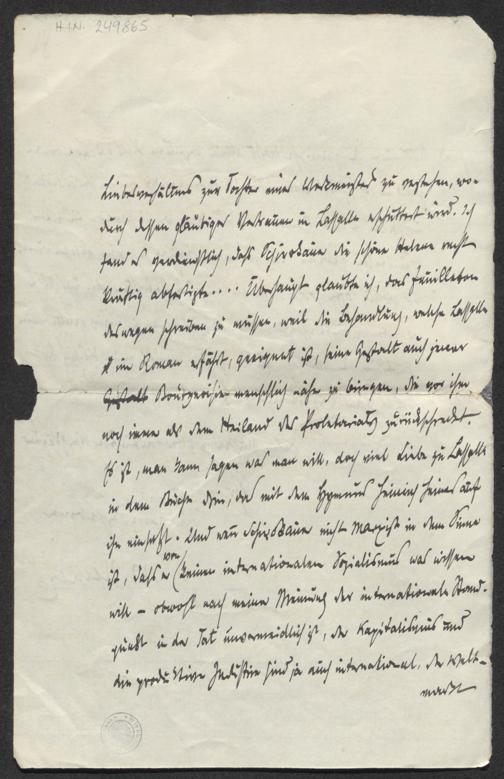 H.I.N. 249865
Liebesverhältnis zur Tochter eines Werkmeisters zu verstehen, wo-
durch dessen gläubiges Vertrauen in Lassalle erschüttert wird. Ich
fand es verdienstlich, daß Schirokauer die schöne Helene recht
kräftig abfertigte.... Überhaupt glaubte ich, das Feuilleton
deswegen schreiben zu müssen, weil die Behandlung, welche Lassalle
im Roman erfährt, geeignet ist, seine Gestalt auch jener
Gestalt Bourgeoisie menschlich näher zu bringen, die vor ihm
noch immer als dem Heiland des Proletariats zurückschreckt.
Es ist, man kann sagen was man will, doch viel Liebe zu Lassalle
in dem Buche drin, das mit dem Hymnus Heinrich Heines auf
ihn einsetzt. Und wenn Schirokauer nicht Marxist in dem Sinne
ist, daß er von keinem internationalen Sozialismus was wissen
will – obwohl nach meiner Meinung der internationale Stand-
punkt in der Tat unvermeidlich ist, der Kapitalismus und
die produktive Industrie sind ja auch international, der Welt-
markt